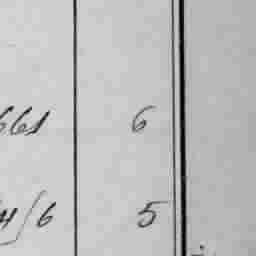 661 6
6 5